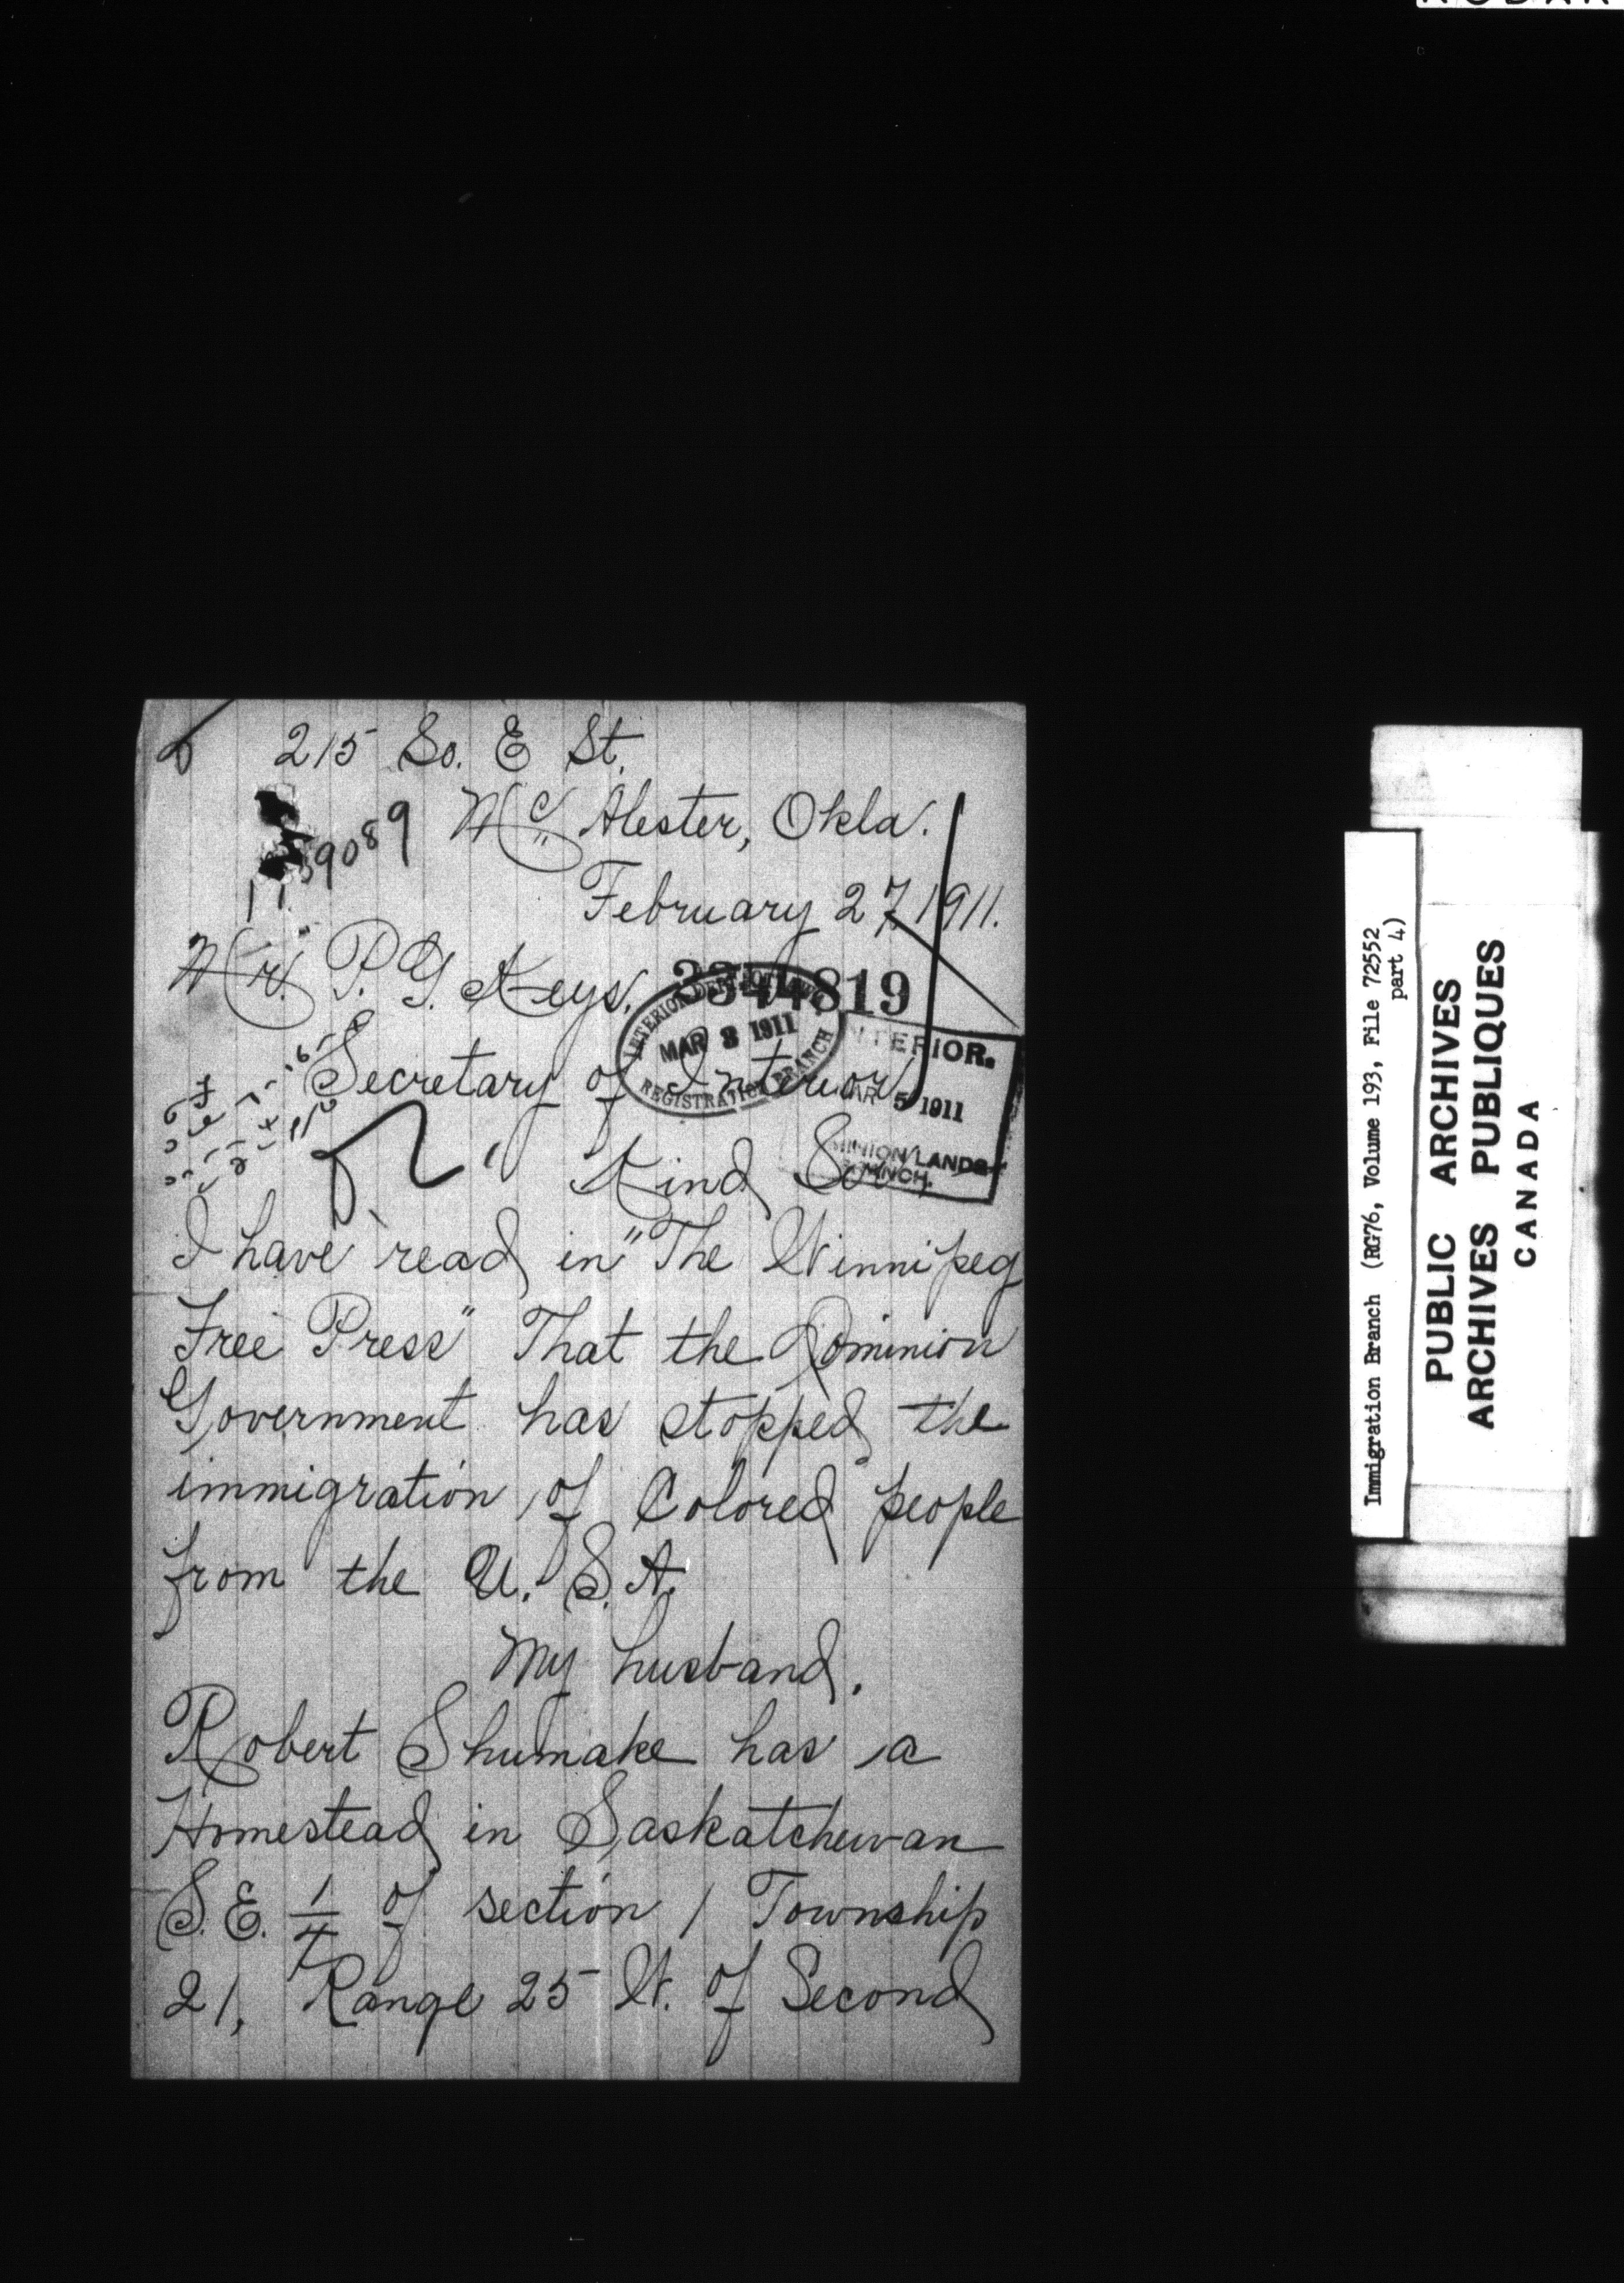 215 So. E St.
McAlester, Okla.
59089
February 27, 1911.
Mr. P. G. Keys.
2344819
INTERIOR DEPT
MAR 3 1911
REGISTRATION BRANCH
Secretary of Interior,
INTERIOR.
MAR 5 1911
DOMINION LANDS
BRANCH.
Kind Sir,
I have read in "The Winnipeg
Free Press" That the Dominion
Government has stopped the
immigration of Colored people
from the U. S. A.
My husband,
Robert Shumake has a
Homestead in Saskatchewan
S. E. 1/4 of section 1 Township
21, Range 25 W. of Second
Immigration Branch (RG76, Volume 193, File 72552
part 4)
PUBLIC ARCHIVES
ARCHIVES PUBLIQUES
CANADA